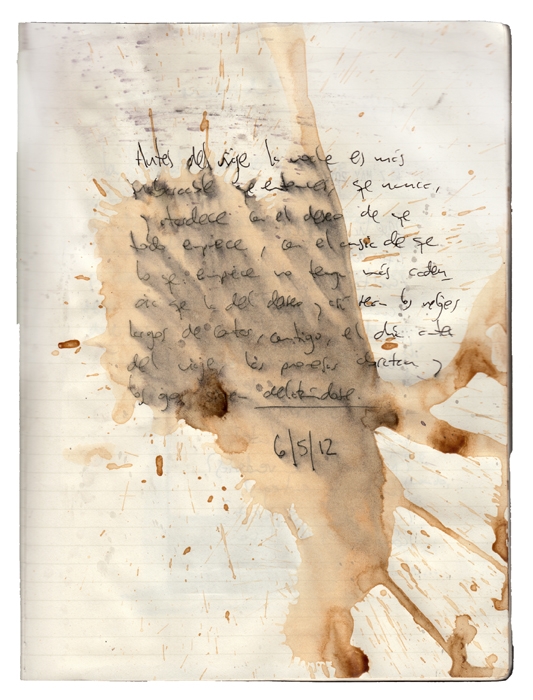 Antes del viaje la noche es más
que entonces, que nunca,
y atardece con el deseo de que
todo empiece, con el ansia de que
lo que empiece no tenga más caden
cia que la del deseo, así sean los viajes
largos de contar, contigo, el día antes
del viaje, las promesas
delatándose.
6/5/12